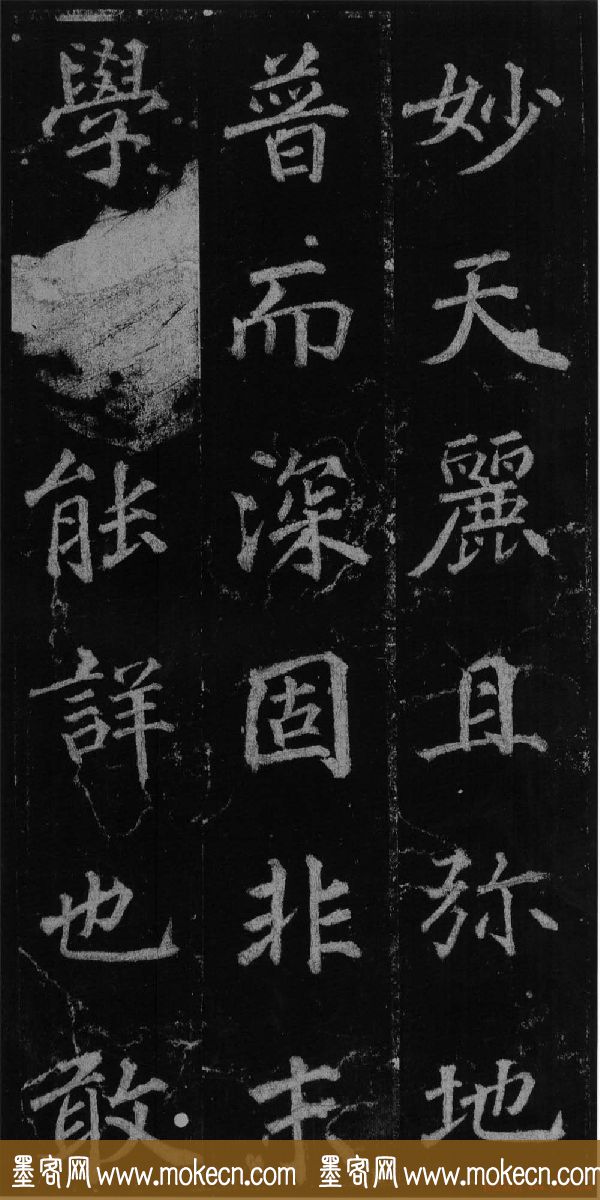 妙天麗且弥地
普而深固非末
學能詳也敢
墨客网 www.mokecn.com 墨客网 www.mokecn.com